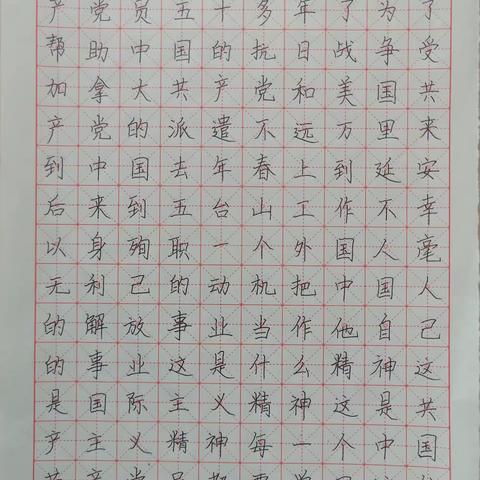 产党员五十多年了为了
帮助中国的抗日战争受
加拿大共产党和美国共
产党的派遣不远万里来
到中国去年春上到延安
后来到五台山工作不幸
以身殉职一个外国人毫
无利己的动机把中国人
的解放事业当作他自己
的事业这是什么精神这
是国际主义精神这是共
产主义精神每一个中国